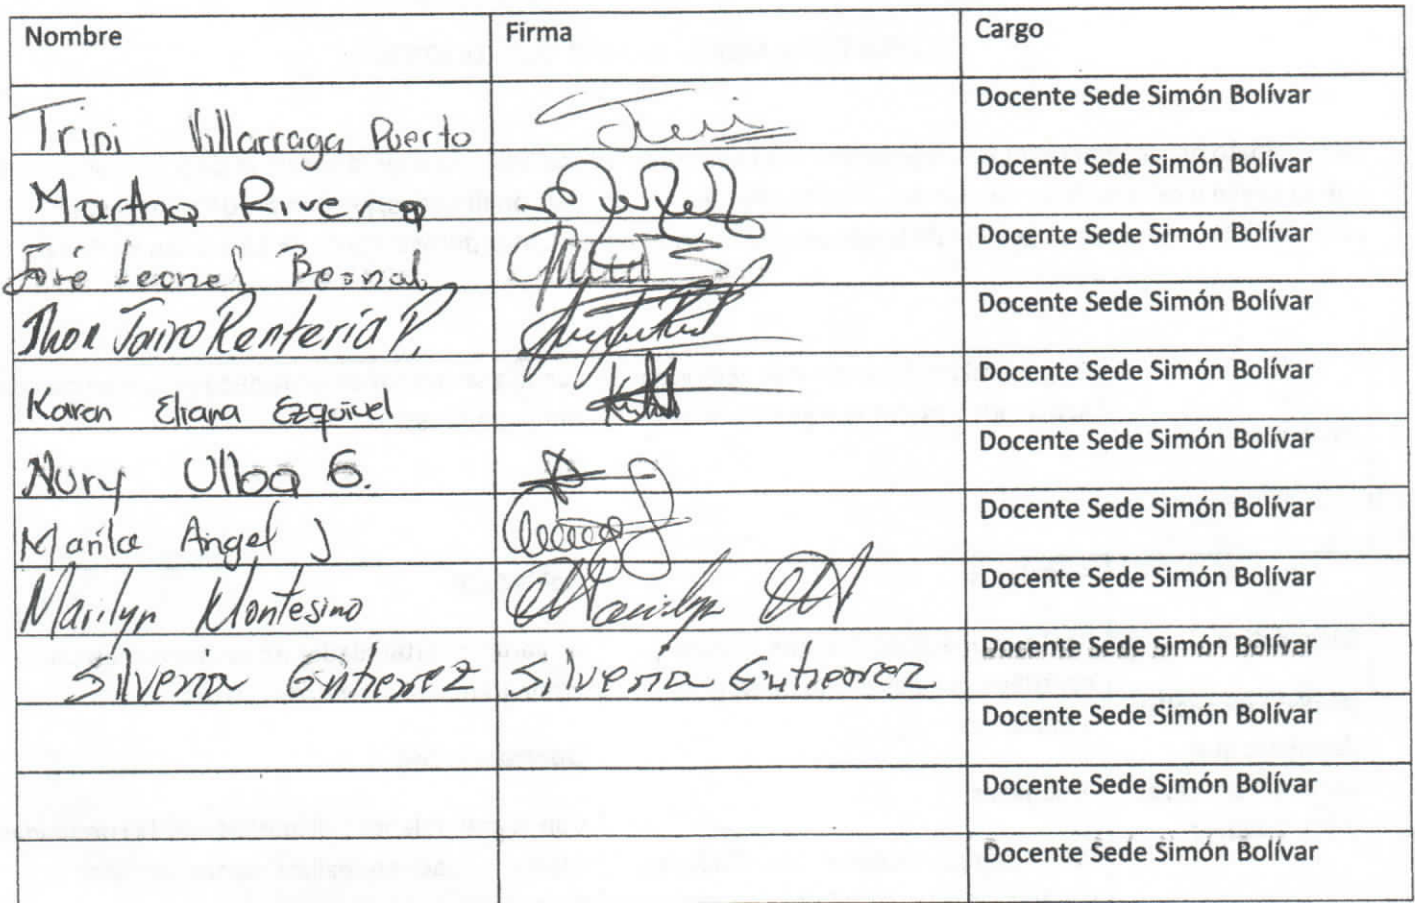 Nombre Firma Cargo
Trini Villarraga Puerto Trini Docente Sede Simón Bolívar
Martha Rivera Docente Sede Simón Bolívar
José Leonel Bernal Docente Sede Simón Bolívar
Jhon Jairo Rentería P. Docente Sede Simón Bolívar
Karen Eliana Ezquivel Docente Sede Simón Bolívar
Nury Ulloa G. Docente Sede Simón Bolívar
Angel J Docente Sede Simón Bolívar
Marilyn Montesino Marilyn M Docente Sede Simón Bolívar
Silveria Gutierrez Silveria Gutierrez Docente Sede Simón Bolívar
Docente Sede Simón Bolívar
Docente Sede Simón Bolívar
Docente Sede Simón Bolívar